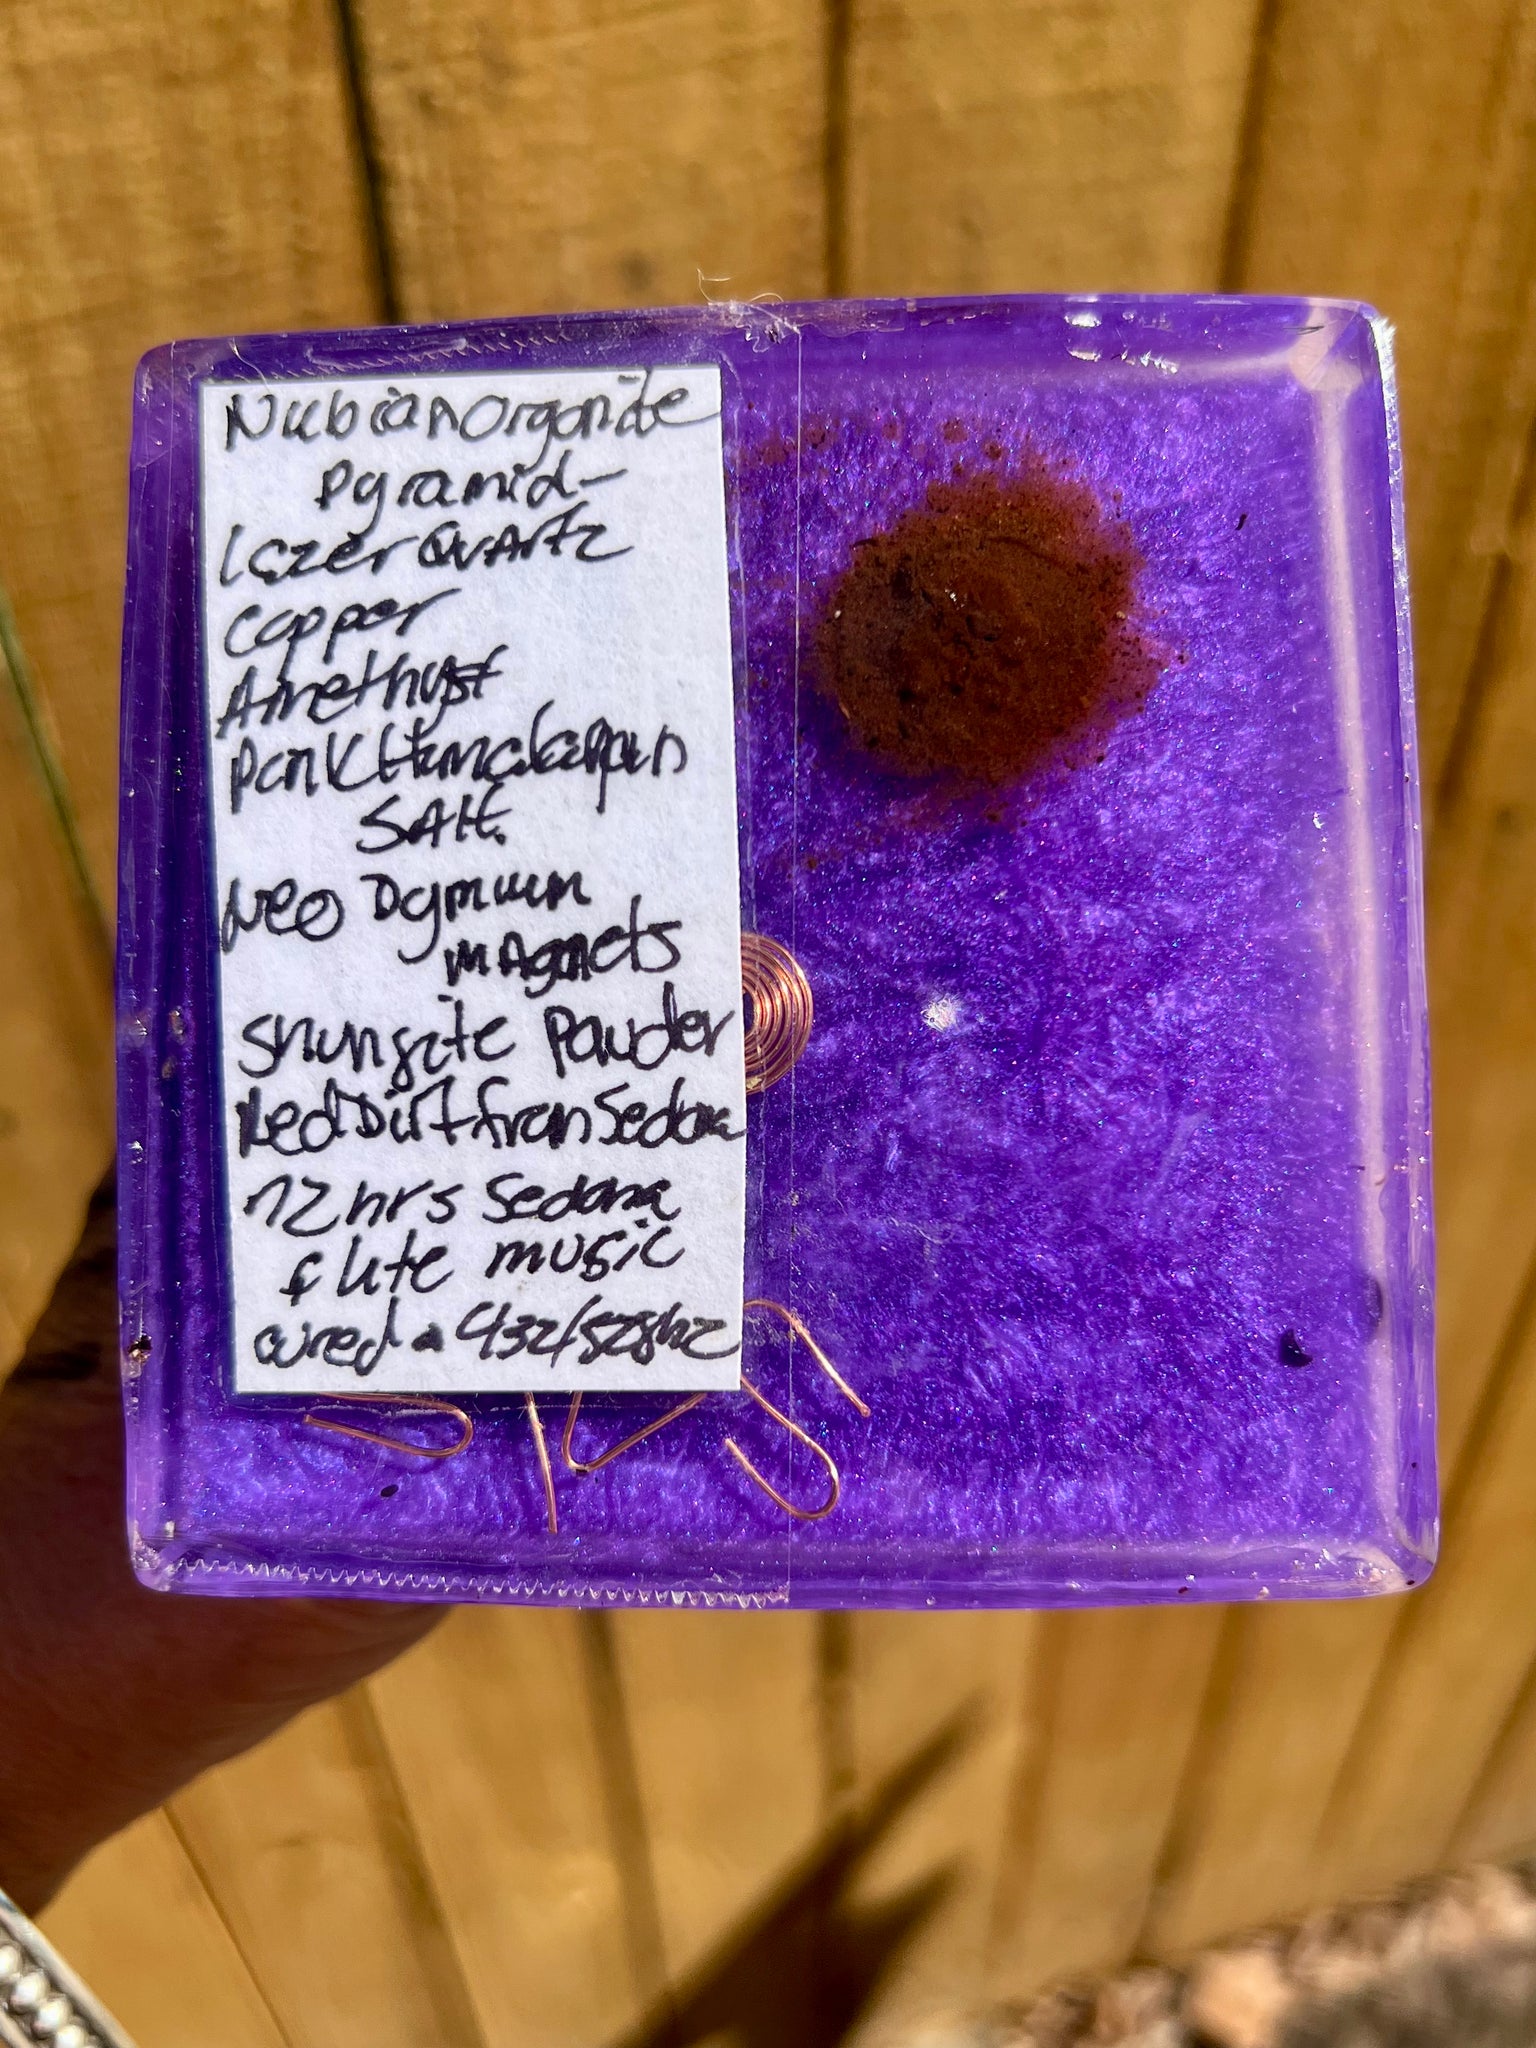 Nubian Orgonite
Pyramid-
Lazer Quartz
Copper
Amethyst
Pink Himalayan
SAlt.
Neo Dymium
MAgnets
Shungite Powder
Red Dirt from Sedona
72 hrs Sedona
flute music
cured 432/528hz